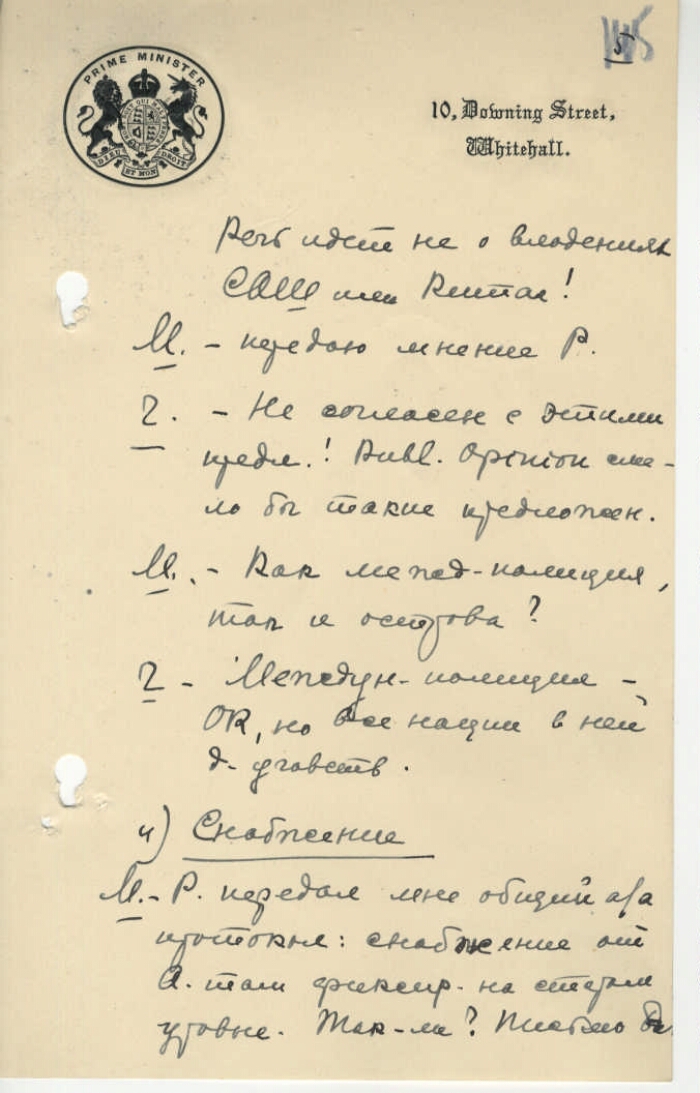 5
PRIME MINISTER
DIEU ET MON DROIT
10, Downing Street,
Whitehall.
Речь идет не о владениях
США или Китая!
М. - передаю мнение Р.
Ч. - Не согласен с этими
предл.! Publ. Opinion сме-
ло бы такие предложен.
М. - Как межд-полиция,
так и острова?
Ч - Междун- полиция -
ОК, но все нации в ней
д- участв.
4) Снабжение
М. - Р. передал мне общий а/а
протокол: снабжение от
А. там фиксир. на старом
уровне. Так-ли? Письмо